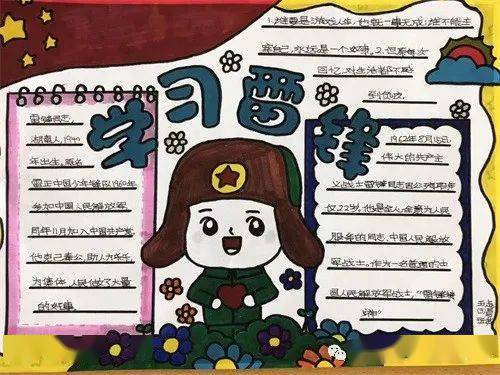 学习雷锋
1.谁要是游戏人生,他就一事无成;谁不能主
宰自己,永远是一个奴隶。2.但愿每次
回忆,对生活都不感
到负疚。
雷锋同志,
湖南人,1940
年出生,原名
雷正
1960年
参加中国人民解放军
同年11月加入中国共产党
他克己奉公,助人为乐,
为集体,人民做了大量
的好事。
1962年8月15日,
伟大的共产主
义战士雷锋同志因公殉职年
仅22岁,他是全人全意为人民
服务的同志,中国人民解放
军战士。作为一名普通的中
国人民解放军战士,"雷锋精
神"